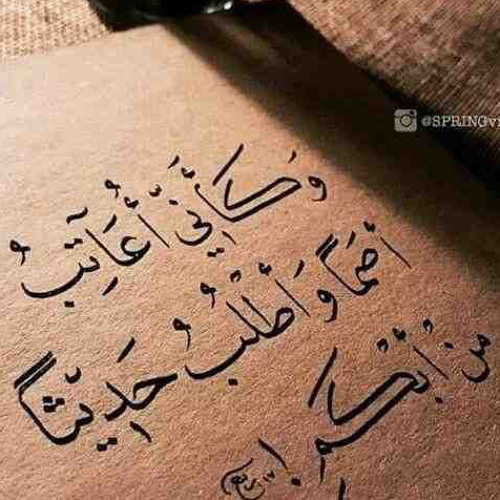 @SPRINGvi
وَكَأَنِّي أُعَاتِبُ
أصَمًّا وَأطْلُبُ حَدِيثًا
مِنْ أبْكَمٍ .!